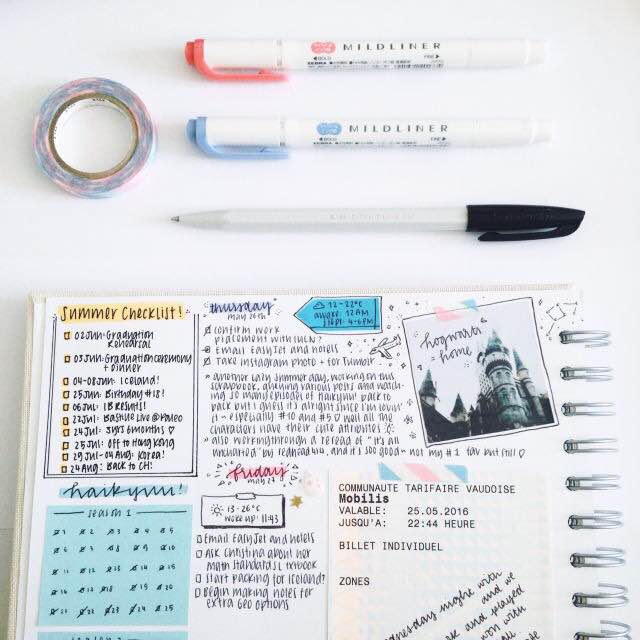 MILDLINER
BOLD
FINE
ZEBRA
MILDLINER
BOLD
FINE
ZEBRA
Summer Checklist!
02 Jun: Graduation
Rehearsal
03 Jun: Graduation ceremony
+ Dinner
04-08 Jun: Iceland!
25 Jun: Birthday #18!
06 Jul: IB Results!
22 Jul: Bastille Live @ Paleo
24 Jul: 3 yrs 6 months ♡
25 Jul: Off to Hong Kong
29 Jul-04 Aug: Korea!
24 Aug: Back to CH!
thursday
may 26th
12-22°C
awake: 12AM
slept: 4-6PM
Confirm work
placement with IUCN?
Email EasyJet and hotels
Take Instagram photo + for Tumblr
" another lazy summer day, working on this
scrapbook, queuing various posts and watch-
ing so many episodes of Haikyuu!! back to
back but i guess it's alright since i'm lovin'
it - especially #10 and #5 ♡ well all the
characters have their cute attributes
" also working through a reread of "it's all
uncharted" by rednaeu4, and it's soo good
hogwarts
home
not my #1 fav but still ♡
haikyuu!
season 1
1 2 3 4 5
6 7 8 9 10
11 12 13 14 15
16 17 18 19 20
21 22 23 24 25
friday
may 27
13-26°C
woke up: 11:43
Email EasyJet and hotels
Ask Christina about her
math standard SL textbook
Start packing for Iceland?
Begin making notes for
extra Geo options
COMMUNAUTE TARIFAIRE VAUDOISE
Mobilis
VALABLE: 25.05.2016
JUSQU'A: 22:44 HEURE
BILLET INDIVIDUEL
ZONES
wednesday night with
and we
and played
on with